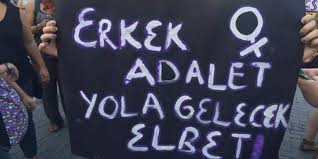 ERKEK
ADALET
YOLA GELECEK
ELBET!